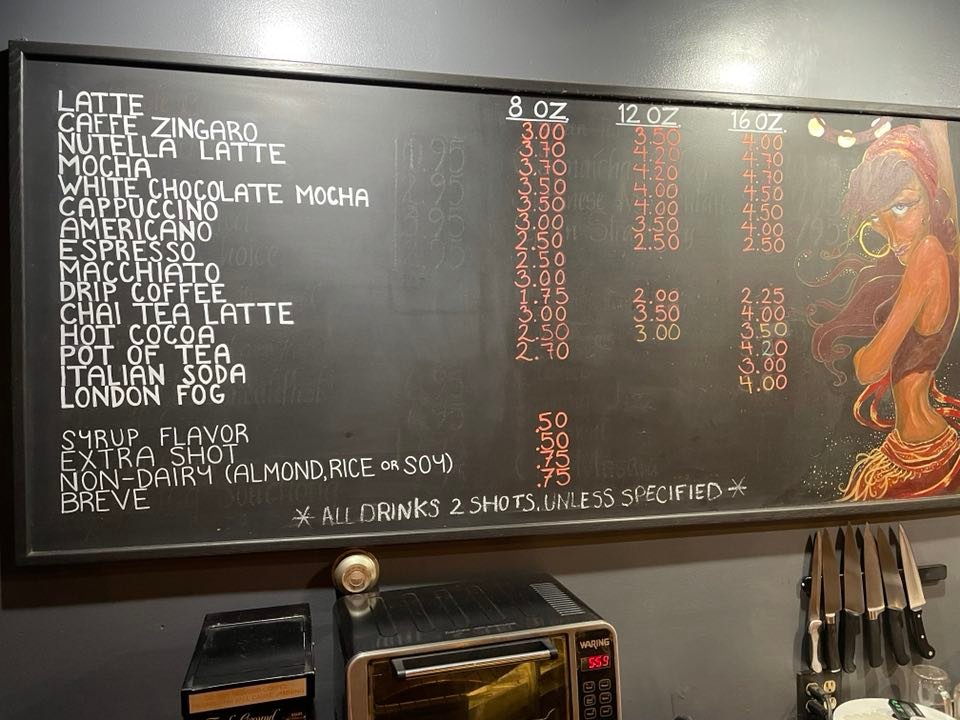 8 OZ. 12 OZ. 16 OZ.
LATTE 3.00 3.50 4.00
CAFFE ZINGARO 3.70 4.20 4.70
NUTELLA LATTE 3.70 4.20 4.70
MOCHA 3.50 4.00 4.50
WHITE CHOCOLATE MOCHA 3.50 4.00 4.50
CAPPUCCINO 3.00 3.50 4.00
AMERICANO 2.50 2.50 2.50
ESPRESSO 2.50
MACCHIATO 3.00
DRIP COFFEE 1.75 2.00 2.25
CHAI TEA LATTE 3.00 3.50 4.00
HOT COCOA 2.50 3.00 3.50
POT OF TEA 2.70 4.20
ITALIAN SODA 3.00
LONDON FOG 4.00
SYRUP FLAVOR .50
EXTRA SHOT .50
NON-DAIRY (ALMOND, RICE OR SOY) .75
BREVE .75
* ALL DRINKS 2 SHOTS, UNLESS SPECIFIED *
WARING
5:59